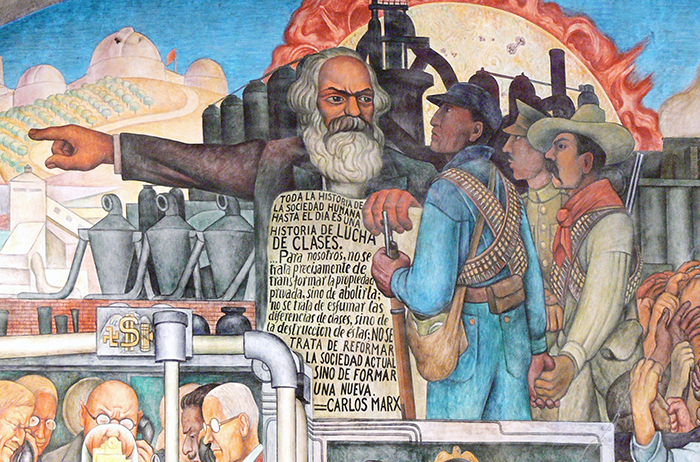 TODA LA HISTORIA DE
LA SOCIEDAD HUMANA
HASTA EL DIA ES UNA
HISTORIA DE LUCHA
DE CLASES.
...Para nosotros, no se
trata precisamente de
transformar la propiedad
privada, sino de abolirla;
no se trata de esfumar las
diferencias de clases, sino de
la destruccion de éstas; NO SE
TRATA DE REFORMAR
LA SOCIEDAD ACTUAL
SINO DE FORMAR
UNA NUEVA.
=CARLOS MARX